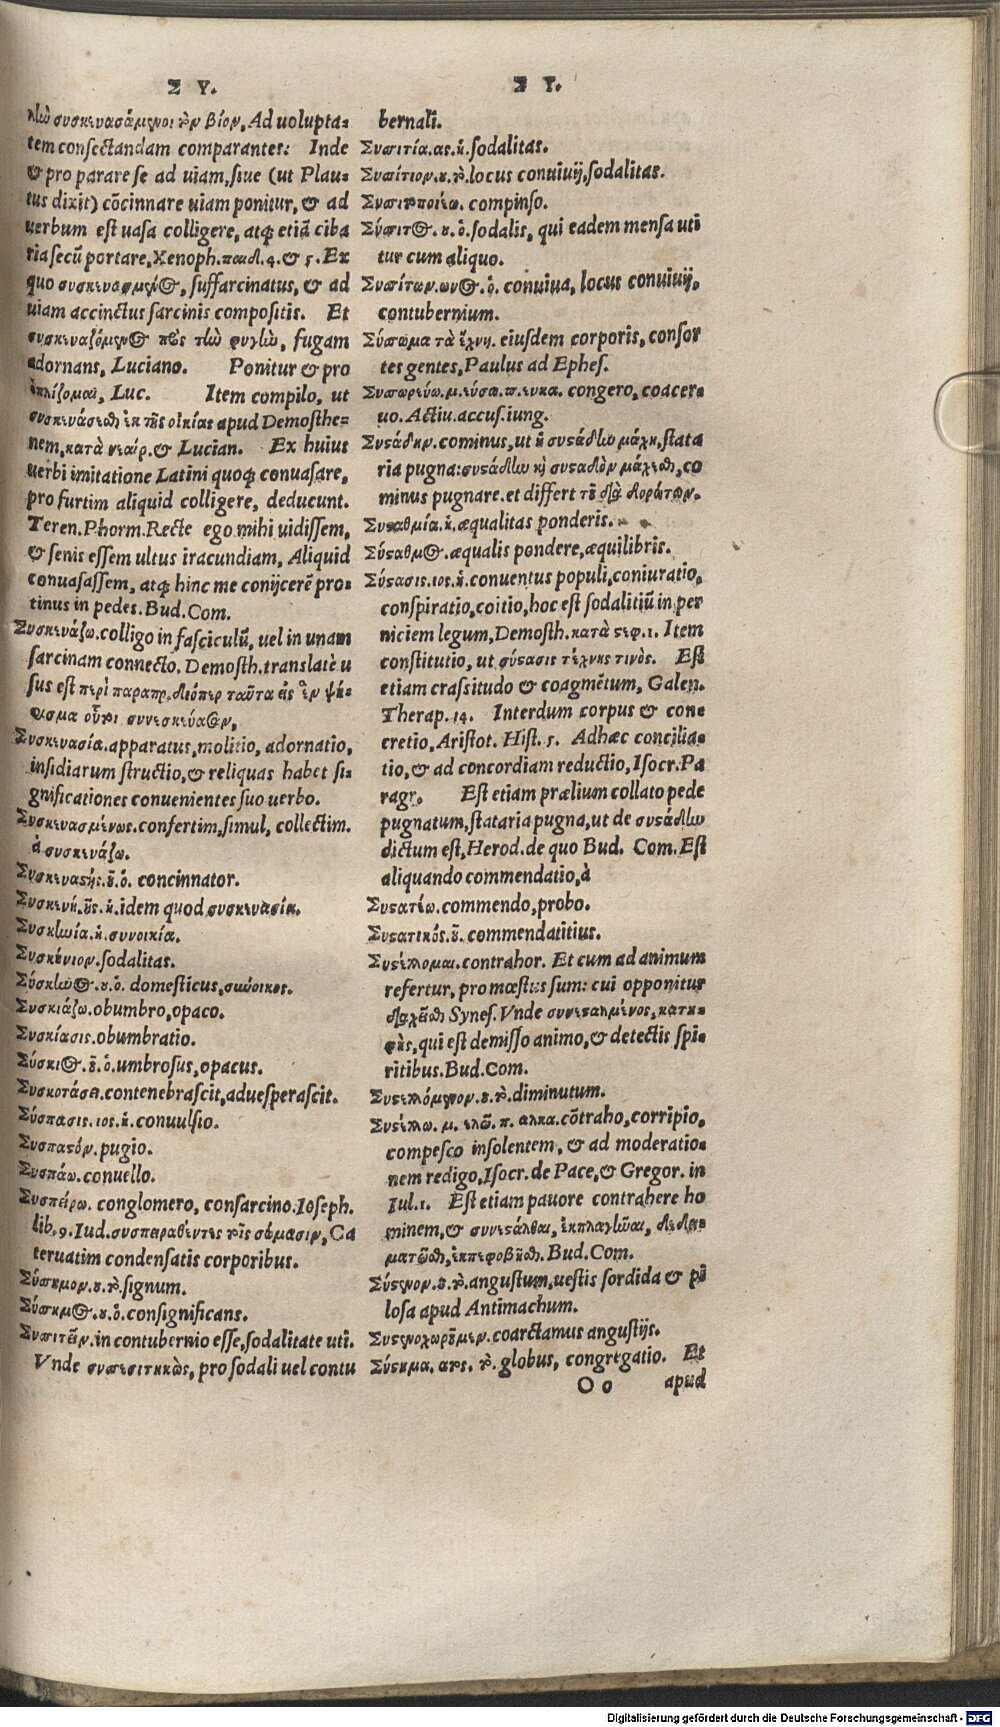 Σ Υ.
νὴν συσκευασάμενοι τὸν βίον, Ad uolupta-
tem consectandam comparantes: Inde
& pro parare se ad uiam, siue (ut Plau-
tus dixit) cõcinnare uiam ponitur, & ad
uerbum est uasa colligere, atq; etiã ciba
ria secũ portare, Xenoph. παιδ. 4. & 5. Ex
quo συσκευασμένος, suffarcinatus, & ad
uiam accinctus sarcinis compositis. Et
συσκευαζόμενος πῶς τὴν φυγὴν, fugam
adornans, Luciano. Ponitur & pro
ὁπλίζομαι, Luc. Item compilo, ut
συσκευάσεσθαι ἐκ τῆς οἰκίας apud Demosthe-
nem, κατὰ νεαίρ. & Lucian. Ex huius
uerbi imitatione Latini quoq; conuasare,
pro furtim aliquid colligere, deducunt.
Teren. Phorm. Recte ego mihi uidissem,
& senis essem ultus iracundiam, Aliquid
conuasassem, atq; hinc me conijcerẽ pro-
tinus in pedes. Bud. Com.
Συσκευάζω. colligo in fasciculũ, uel in unam
sarcinam connecto. Demosth. translatè u
sus est περὶ παραπρ. διόπερ ταῦτα εἰς ἓν ψή-
φισμα οὗτοι συνεσκεύασαν,
Συσκευασία. apparatus, molitio, adornatio,
insidiarum structio, & reliquas habet si-
gnificationes conuenientes suo uerbo.
Συσκευασμένως. confertim, simul, collectim.
à συσκευάζω.
Συσκευαστής. οῦ. ὁ. concinnator.
Συσκευή. ῆς. ἡ. idem quod συσκευασία.
Συσκηνία. ἡ. συνοικία.
Συσκήνιον. sodalitas.
Σύσκηνος. ου. ὁ. domesticus, σύνοικος.
Συσκιάζω. obumbro, opaco.
Συσκίασις. obumbratio.
Σύσκιος. ου. ὁ. umbrosus, opacus.
Συσκοτάσει. contenebrascit, aduesperascit.
Σύσπασις. ιος. ἡ. conuulsio.
Συσπαστόν. pugio.
Συσπάω. conuello.
Συσπείρω. conglomero, consarcino. Ioseph.
lib. 9. Iud. συσπειραθέντες τοῖς σώμασιν, Ca
teruatim condensatis corporibus.
Σύσσημον. ου. τὸ. signum.
Σύσσημος. ου. ὁ. consignificans.
Συσσιτεῖν. in contubernio esse, sodalitate uti.
Vnde συσσεσιτηκὼς, pro sodali uel contu
Σ Υ.
bernali.
Συσσιτία. ας. ἡ. sodalitas.
Συσσίτιον. ου. τὸ. locus conuiuij, sodalitas.
Συσσιτοποιέω. compinso.
Σύσσιτος. ου. ὁ. sodalis, qui eadem mensa uti
tur cum aliquo.
Συσσίτων. ωνος. ὁ. conuiua, locus conuiuij,
contubernium.
Σύσσωμα τὰ ἔθνη. eiusdem corporis, consor
tes gentes, Paulus ad Ephes.
Συσσωρεύω. μ. εύσω. π. ευκα. congero, coacer-
uo. Actiu. accus. iung.
Συστάδην. cominus, ut ἡ συστάδην μάχη, stata
ria pugna: συστάδην καὶ συσταδὸν μάχεσθαι, co
minus pugnare. et differt τοῦ διὰ δοράτων.
Συσταθμία. ἡ. æqualitas ponderis.
Σύσταθμος. æqualis pondere, æquilibris.
Σύστασις. ιος. ἡ. conuentus populi, coniuratio,
conspiratio, coitio, hoc est sodalitiũ in per
niciem legum, Demosth. κατὰ στεφ. 1. Item
constitutio, ut σύστασις τέχνης τινός. Est
etiam crassitudo & coagmẽtum, Galen.
Therap. 14. Interdum corpus & con-
cretio, Aristot. Hist. 5. Adhæc concilia-
tio, & ad concordiam reductio, Isocr. Pa
ragr. Est etiam prælium collato pede
pugnatum, stataria pugna, ut de συστάδην
dictum est, Herod. de quo Bud. Com. Est
aliquando commendatio, à
Συστατέω. commendo, probo.
Συστατικός. οῦ. commendatitius.
Συστέλλομαι. contrahor. Et cum ad animum
refertur, pro mœstus sum: cui opponitur
διαχεῖσθαι Synes. Vnde συνεσταλμένος, κατη-
φὴς, qui est demisso animo, & detectis spi-
ritibus. Bud. Com.
Συστελλόμενον. ου. τὸ. diminutum.
Συστέλλω. μ. ελῶ. π. αλκα. cõtraho, corripio,
compesco insolentem, & ad moderatio-
nem redigo, Isocr. de Pace, & Gregor. in
Iul. 1. Est etiam pauore contrahere ho
minem, & συνεστάλθαι, ἐκπλαγῆναι, δεδει-
ματῶσθαι, ἐκπεφοβῆσθαι. Bud. Com.
Σύστενον. ου. τὸ. angustum, uestis sordida & pi
losa apud Antimachum.
Συστενοχωροῦμεν. coarctamus angustijs.
Σύστημα. ατος. τὸ. globus, congregatio. Et
O o apud
Digitalisierung gefördert durch die Deutsche Forschungsgemeinschaft - DFG